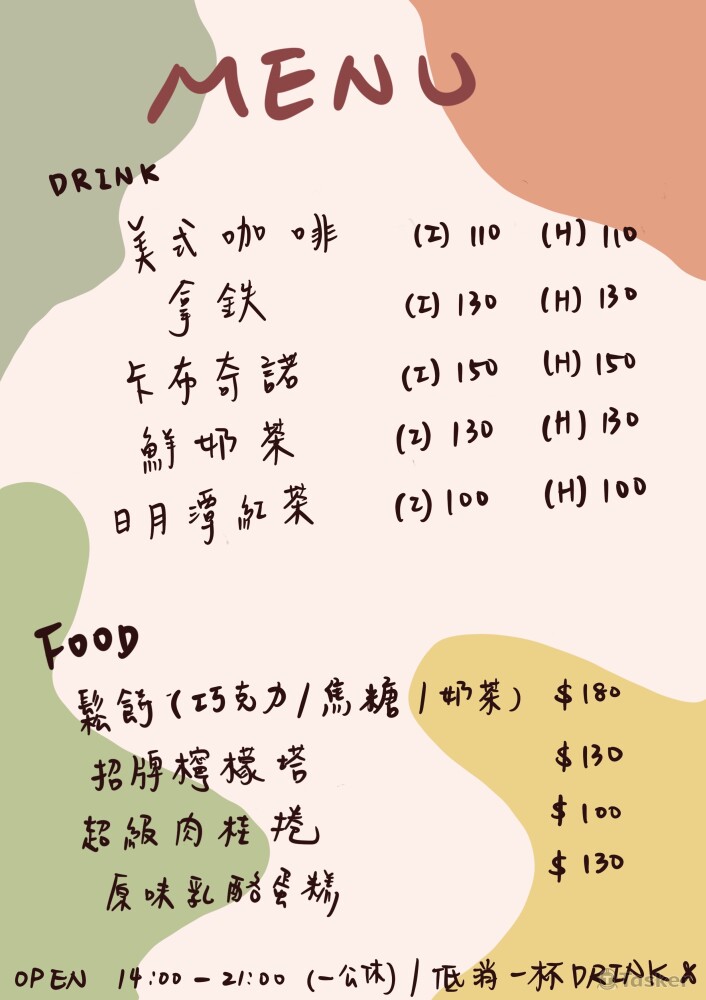 MENU
DRINK
美式咖啡 (I) 110 (H) 110
拿鐵 (I) 130 (H) 130
卡布奇諾 (I) 150 (H) 150
鮮奶茶 (I) 130 (H) 130
日月潭紅茶 (I) 100 (H) 100
FOOD
鬆餅(巧克力/焦糖/奶茶) $180
招牌檸檬塔 $130
超級肉桂捲 $100
原味乳酪蛋糕 $130
OPEN 14:00-21:00 (一公休) / 低消一杯DRINK
Tasker